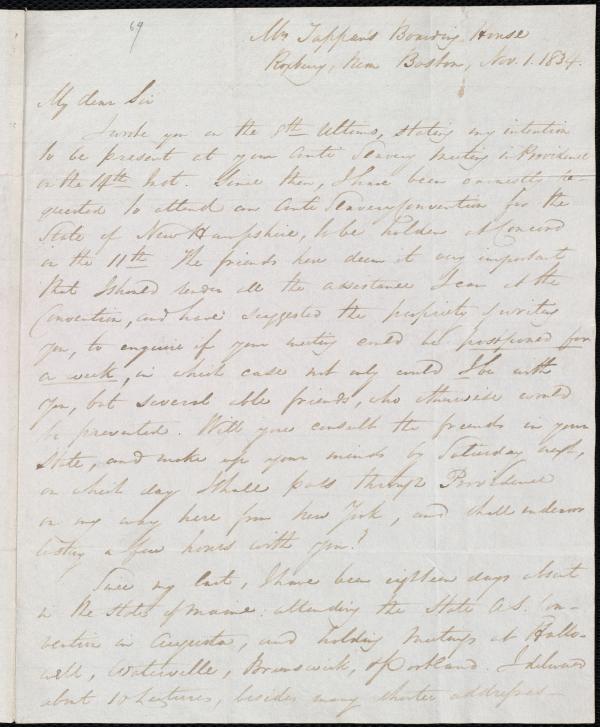 69
Mrs Tappan's Boarding House
Roxbury, near Boston, Nov. 1. 1834.
My dear Sir
I wrote you on the 8th Ultimo, stating my intention
to be present at your Anti Slavery Meeting in Providence
on the 14th Inst. Since then, I have been earnestly re-
quested to attend an Anti Slavery Convention for the
State of New Hampshire, to be holden at Concord
on the 11th The friends here deem it very important
that I should render all the assistance I can at the
Convention, and have suggested the propriety of writing
you, to enquire if your meeting could be postponed for
a week, in which case not only could I be with
you, but several able friends, who otherwise would
be prevented. Will you consult the friends in your
State, and make up your minds by Saturday next,
on which day I shall pass through Providence
on my way here from New York, and shall endeavor
to stay a few hours with you?
Since my last, I have been eighteen days absent
in the State of Maine: attending the State A.S. Con-
vention in Augusta, and holding Meetings at Hallo-
well, Waterville, Brunswick, & Portland. I delivered
about 10 Lectures, besides many shorter addresses—